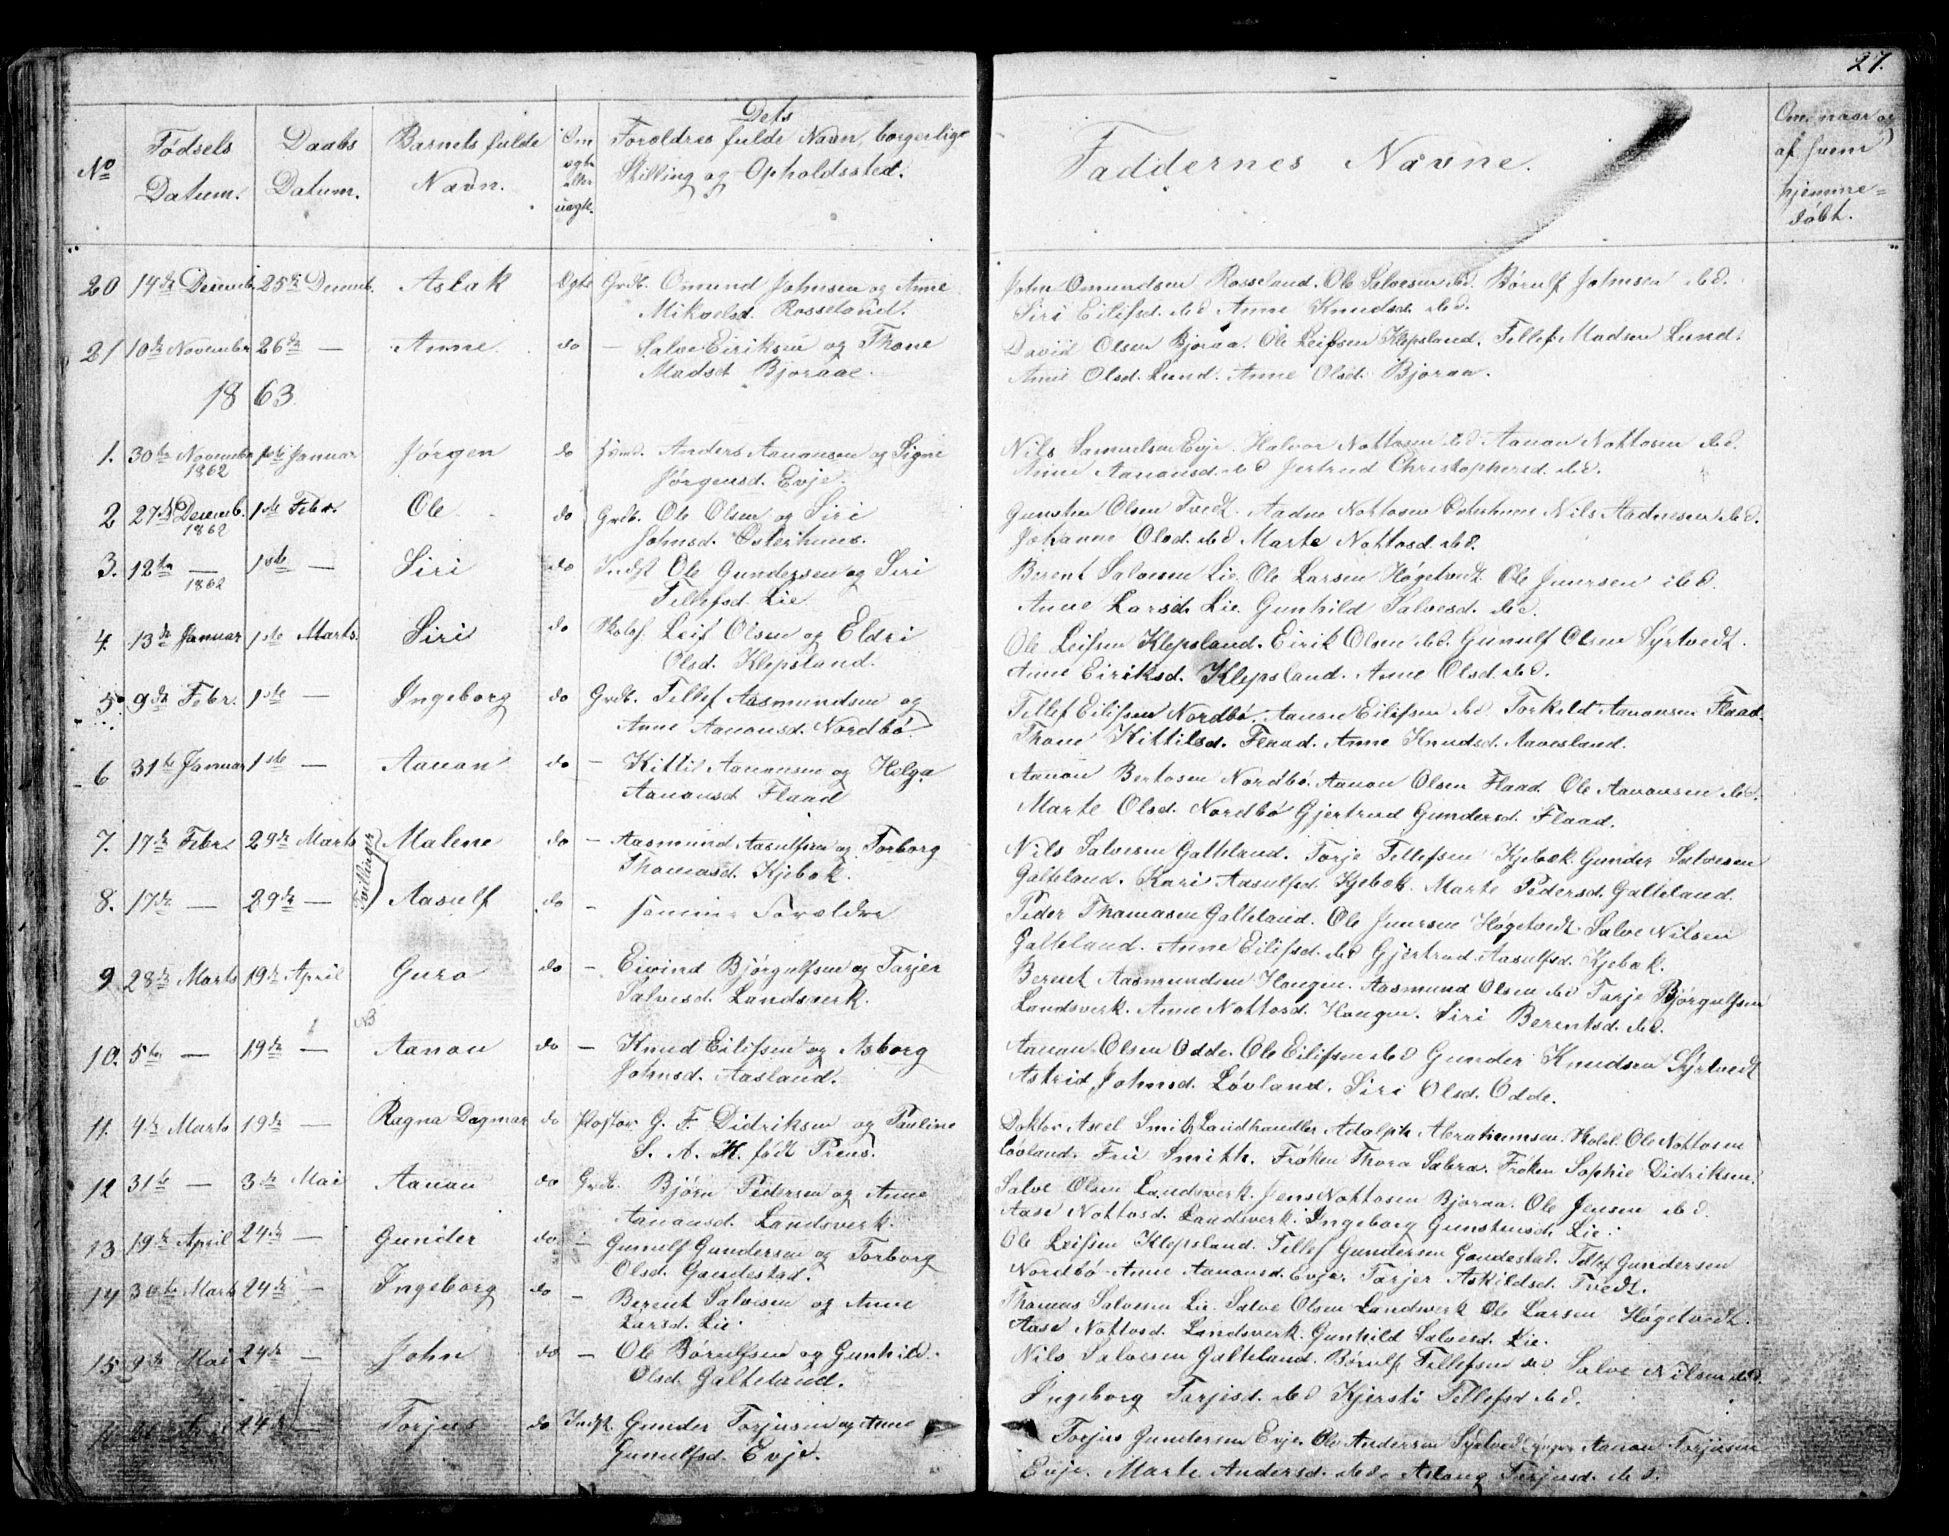 27.
No
Fødsels
Datum.
Daabs
Datum.
Barnets fulde
Navn.
Om
ægte
eller
uægte.
Dets
Forældres fulde Navn, borgerlige
Stilling og Opholdssted.
Faddernes Navne.
Om, naar og
af hvem
hjemme=
døbt.
20 14de Decemb. 25de Decemb. Aslak Ægte Grdb. Omund Johnsen og Anne
Mikaelsd. Rosseland.
John Omundsen Rosseland. Ole Salvesen ibd. Børulf Johnsen ibd.
Siri Eilifsd. ibd Anne Knudsd. ibd.
21 10de Novembr 26de — Anne do — Salve Eiriksen og Thone
Madsd Bjoraae.
David Olsen Bjoraa. Ole Leifsen Klepsland. Tellef Madsen Lund.
Anne Olsd. Lund. Anne Olsd. Bjoraa.
1863
1. 30te Novembr 1ste Januar Jørgen do Anders Aanonsen og Signe
1862
Jørgensd. Evje.
Nils Samuelsen Evje. Halvor Nottosen ibd Aanon Nottosen ibd.
Anne Aanonsd. ibd Jertrud Christophersd. ibd.
2 27de Decemb. 1ste Febr. Ole do Grdb. Ole Olsen og Siri
1862
Johnsd. Østerhuus.
Gunsten Olsen Tvedt. Aadne Nottosen Østerhuus Nils Aadnesen ibd.
Johanne Olsd. ibd Marte Nottosd. ibd.
3. 12te — 1ste — Siri do Indst Ole Gundersen og Siri
1862
Tellefsd. Lie
Berent Salvesen Lie. Ole Larsen Høgetvedt. Ole Juursen ibd.
Anne Larsd. Lie Gunhild Salvesd. ibd.
4. 13de Januar 1ste Marts. Siri do Skolef. Leif Olsen og Eldri
Olsd. Klepsland.
Ole Leifsen Klepsland. Eirik Olsen ibd. Gunulf Olsen Syrtvedt.
Anne Eiriksd. Klepsland. Anne Olsd. ibd.
5 9de Febr. 1ste — Ingeborg do Grdb. Tellef Aasmundsen og
Anne Aanonsd. Nordbø.
Tellef Eilifsen Nordbø. Aanon Eilifsen ibd Torkild Aanonsen Flaad.
Thone Kittilsd. Flaad. Anne Knudsd. Aavesland.
6 31te Januar 1ste — Aanon do — Kittil Aanonsen og Helga
Aanonsd Flaad
Aanon Bertosen Nordbø. Aanon Olsen Flaad Ole Aanonsen ibd.
Marte Olsd. Nordbø Gjertrud Gundersd. Flaad.
7. 17de Febr. 29de Marts Malene do — Aasmund Aasulfsen og Torborg
Tvillinger
Thomasd. Kjebok.
Nils Salvesen Galteland. Torje Tellefsen Kjebok. Gunder Salvesen
Galteland. Kari Aasulfsd. Kjebok. Marte Pedersd. Galteland.
8. 17de — 29de — Aasulf do — samme Forældre
Peder Thomasen Galteland. Ole Juursen Høgetvedt. Salve Nilsen
Galteland. Anne Eilifsd. ibd Gjertrud Aasulfsd. Kjebok.
9 28de Marts 19de April Guro do — Eivind Bjørgulfsen og Tarjer
Salvesd. Landsverk.
Berent Aasmundsen Hougen. Aasmund Olsen ibd Tarje Bjørgulfsen
Landsverk. Anne Nottosd. Hougen. Siri Berentsd. ibd.
10. 5te — 19de — Aanon do — Knud Eilifsen og Asborg
Johnsd. Aasland.
Aanon Olsen Odde. Ole Eilifsen ibd Gunder Knudsen Syrtvedt
Astrid Johnsd. Løvland. Siri Olsd. Odde.
11. 4de Marts 19de — Ragna Dagmar do Pastor G. F. Didriksen og Pauline
S. A. H. født Preus.
Doktor Axel Smith, Landhandler Adolph Abrahamsen. Ole Nottosen
Løvland. Fru Smith. Frøken Thora Sabra. Frøken Sophie Didriksen.
12 31te — 3de Mai Aanon do Grdb. Bjørn Pedersen og Anne
Aanonsd. Landsverk.
Salve Olsen Landsverk. Jens Nottosen Bjoraa. Ole Jensen ibd.
Aase Nottosd. Landsverk. Ingeborg Gunstensd. Lie.
13 19de April 24de — Gunder do — Gunulf Gundersen og Torborg
Olsd. Gaudestad.
Ole Leifsen Klepsland. Tellef Gundersen Gaudestad. Tellef Gundersen
Nordbø. Anne Aanonsd. Evje. Tarjer Askildsd. Tvedt.
14 30te Marts 24de — Ingeborg do — Berent Salvesen og Anne
Larsd. Lie.
Thomas Salvesen Lie. Salve Olsen Landsverk Ole Larsen Høgetvedt.
Aase Nottosd. Landsverk. Gunhild Salvesd. Lie.
15 9de Mai 24de — John do — Ole Børulfsen og Gunhild
Olsd. Galteland.
Nils Salvesen Galteland. Børulf Tellefsen ibd Salve Nilsen ibd.
Ingeborg Tarjesd. ibd Kjersti Tellefsd ibd.
24de — Torjus do Indst. Gunder Torjusen og Anne
Gunulfsd. Evje.
Torjus Gundersen Evje. Ole Andersen Aanon Torjusen
Evje. Marte Andersd. ibd. Aslaug Torjusd. ibd.